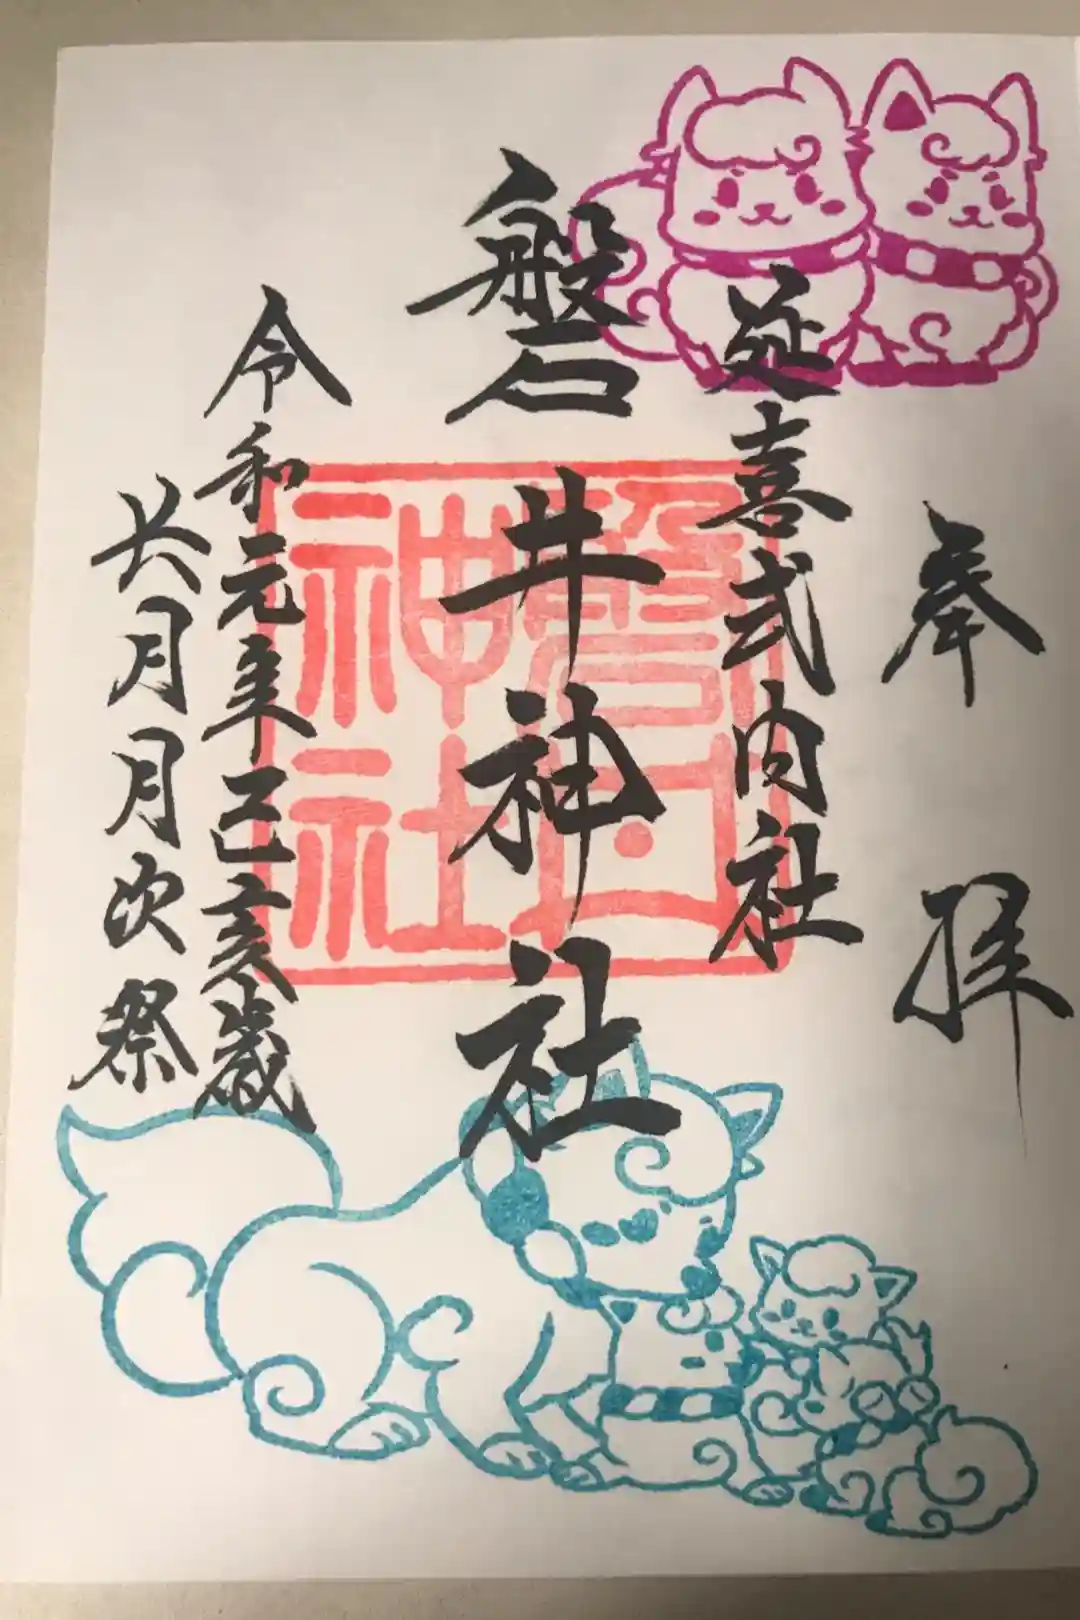 奉拝
延喜式内社
磐井神社
令和元年己亥歳
六月月次祭
磐井神社